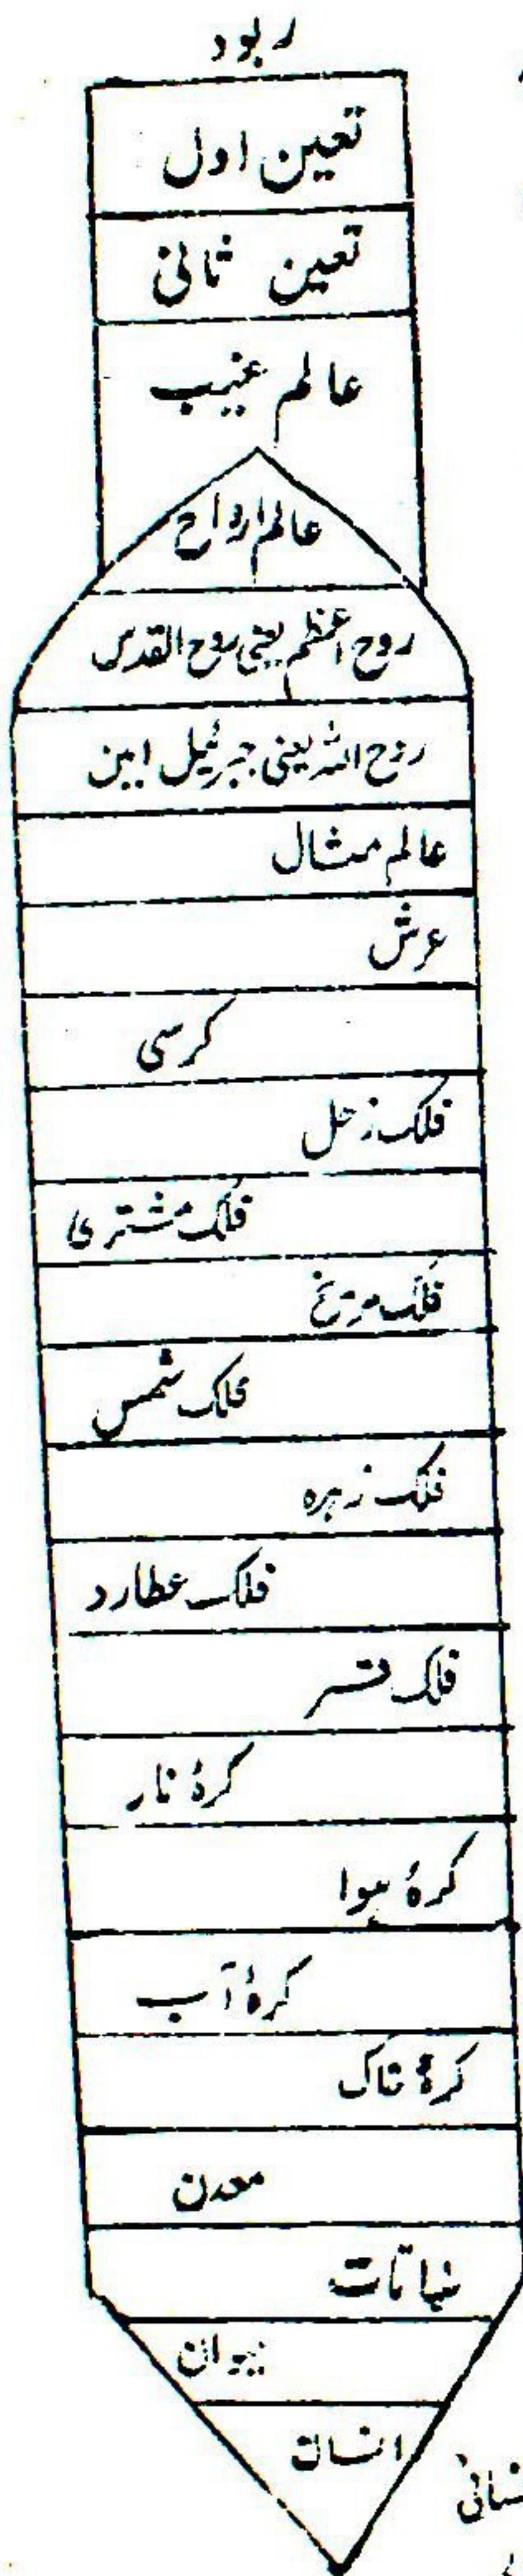 ربود
تعین اول
تعین ثانی
عالم غیب
عالم ارواح
روح اعظم یعنی روح القدس
روح اللہ یعنی جبرئیل امین
عالم مثال
عرش
کرسی
فلک زحل
فلک مشتری
فلک مریخ
فلک شمس
فلک زہرہ
فلک عطارد
فلک قمر
کرۂ نار
کرۂ ہوا
کرۂ آب
کرۂ خاک
معدن
نباتات
حیوان
انسان